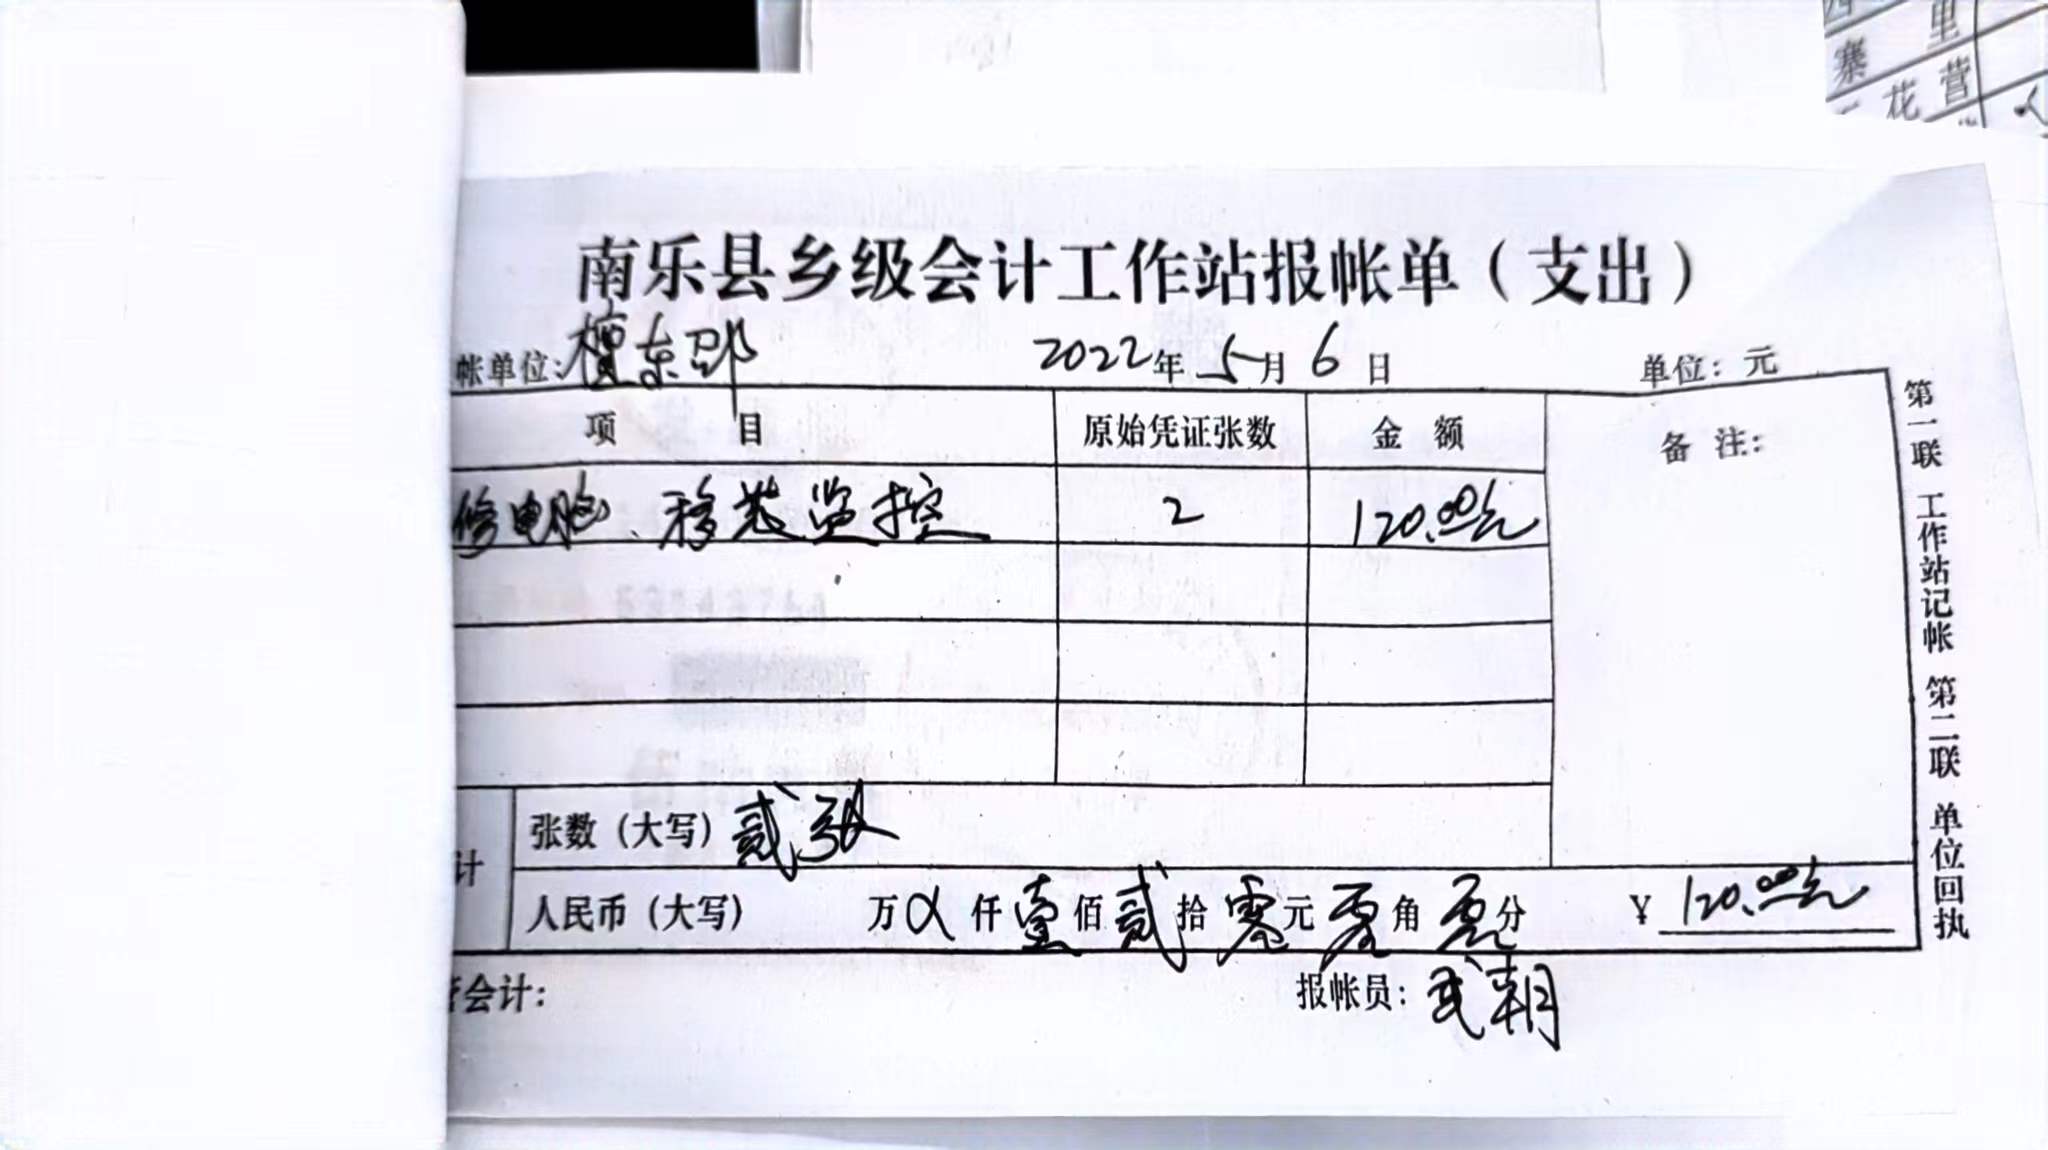 里
寨
花 营
南乐县乡级会计工作站报帐单（支出）
帐单位：檀东邵 2022年5月6日 单位：元
项 目 原始凭证张数 金 额 备 注：
修电脑、移装监控 2 120.00元
计 张数（大写）贰张
人民币（大写） 万 仟壹佰贰拾零元零角零分 ¥ 120.00元
会计： 报帐员：武朝
第一联 工作站记帐 第二联 单位回执